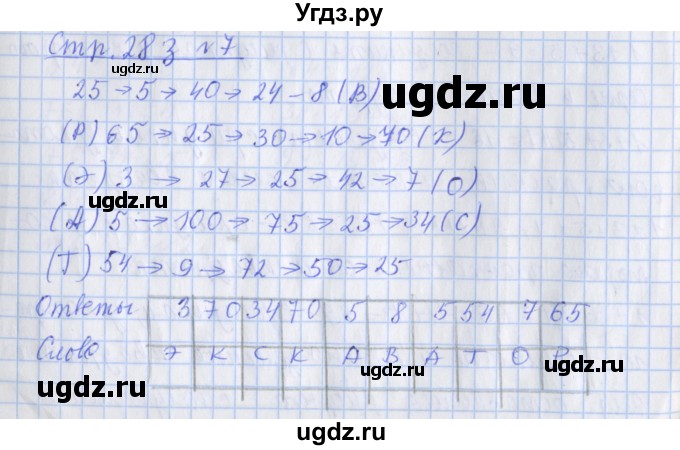 Угдз.ру
Стр. 28 з №7
ugdz.ru ugdz.ru
25 → 5 → 40 → 24 – 8 (В)
ugdz.ru
(Р) 65 → 25 → 30 → 10 → 70 (К)
(Э) 3 → 27 → 25 → 42 → 7 (О)
ugdz.ru ugdz.ru
(А) 5 → 100 → 75 → 25 → 34 (С)
(Т) 54 → 9 → 72 → 50 → 25
ugdz.ru
Ответы 3 70 34 70 5 8 5 54 7 65
Слово Э К С К А В А Т О Р
ugdz.ru ugdz.ru
ugdz.ru
ugdz.ru